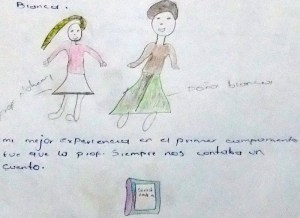 Bianca.
mi mejor experiencia en el primer campamento
fue que la prof. Siempre nos contaba un
cuento.